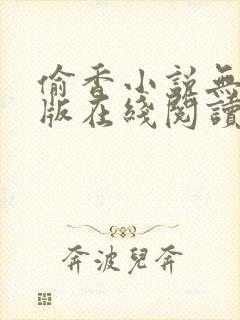 偷香小說無
版在綫閱讀
奔波兒奔